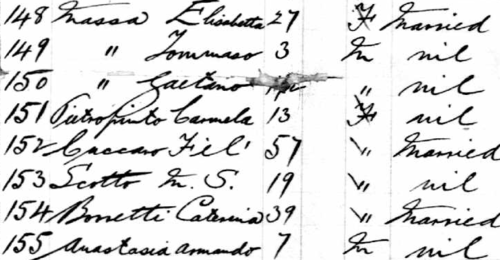 148 Massa Elisabetta 27 F Married
149 " Tommaso 3 M nil
150 " Gaetano " nil
151 Pietropinto Carmela 13 F nil
152 Cuccaro Fil' 57 " Married
153 Scotto M. S. 19 " nil
154 Borretti Caterina 39 " Married
155 Anastasia Armando 7 M nil